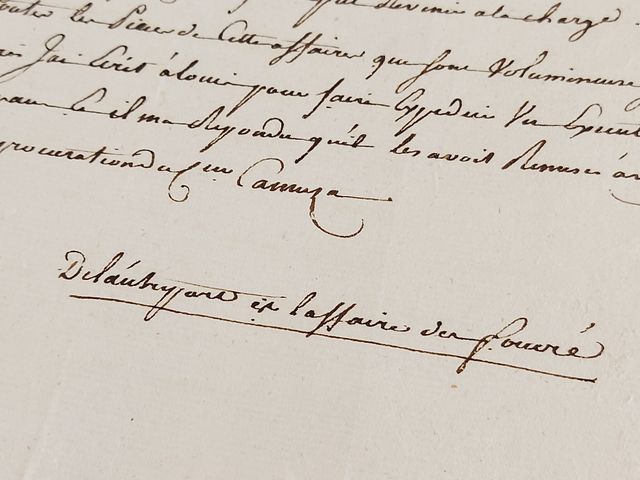 devenir a la charge
toutes les Pieces de Cette affaire que sont Volumineuse
J'ai Ecrit à pour faire Expedier Un
il m'a Repondu qu'il les avoit Remises à
procuration du Cen Camuza
De l'autre part est l'affaire de fouré